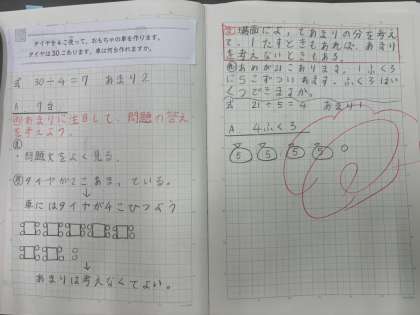 タイヤを4こ使って、おもちゃの車を作ります。
タイヤは30こあります。車は何台作れますか。
式 30÷4=7 あまり2
A 7台
あまりに注目して、問題の答え
を考えよう。
・問題文をよく見る。
タイヤが2こあまっている。
↓
車にはタイヤが4こひつよう
↓
あまりは考えなくてよい。
場面によってあまりの分を考え
て、1たすときもあれば、あまり
を考えないときもある。
あめが21こあります。1ふくろ
に5こずついれます。ふくろはいく
つできますか。
式 21÷5=4 あまり1
A 4ふくろ
5 5 5 5